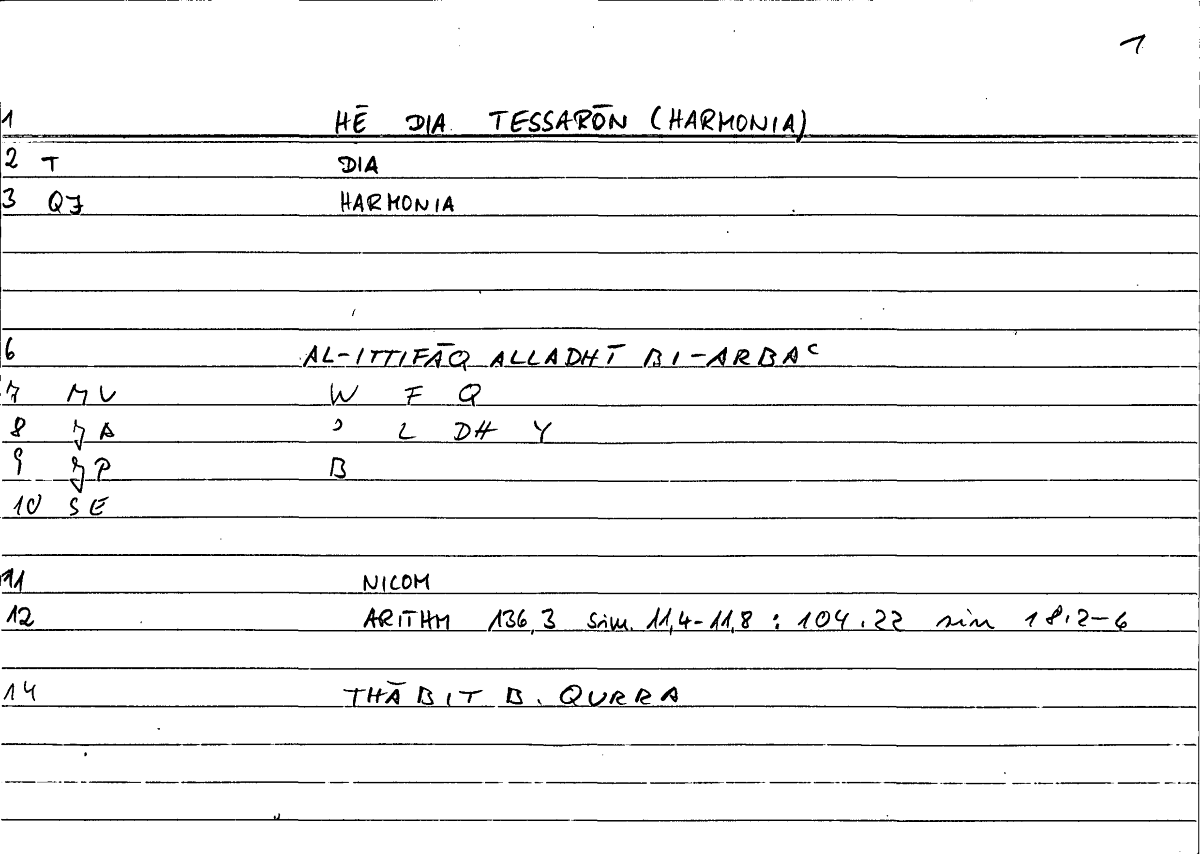 1
1 HĒ DIA TESSARŌN (HARMONIA)
2 T DIA
3 QJ HARMONIA
6 AL-ITTIFĀQ ALLADHĪ BI-ARBAᶜ
7 MU W F Q
8 JA ʾ L DH Y
9 JP B
10 SE
11 NICOM
12 ARITHM 136,3 sim. 11,4-11,8 : 104.22 sim 18.2-6
14 THĀBIT B. QURRA